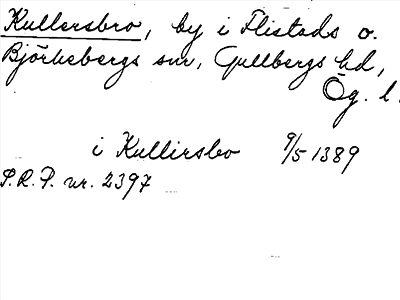 Kullersbro, by i Flistads o.
Björkebergs snr, Gullbergs hd,
Ög. l.
i Kullirsbo 9/5 1389
S.R.P. nr. 2397